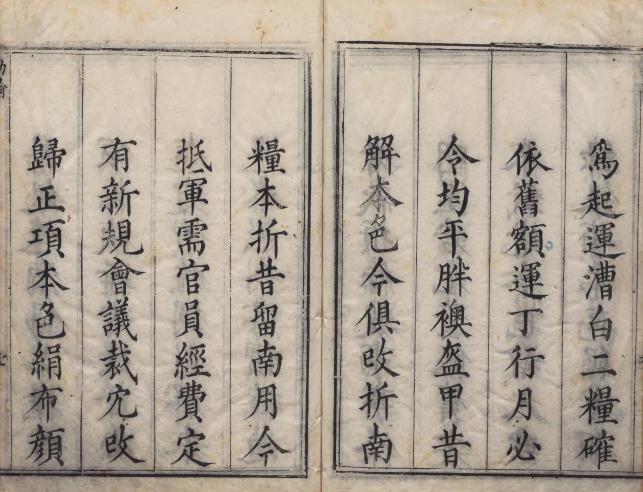 爲起運漕白二糧確
依舊額運丁行月必
令均平胖襖盔甲昔
解本色今俱改折南
糧本折昔留南用今
抵軍需官員經費定
有新規會議裁冗改
歸正項本色絹布顏